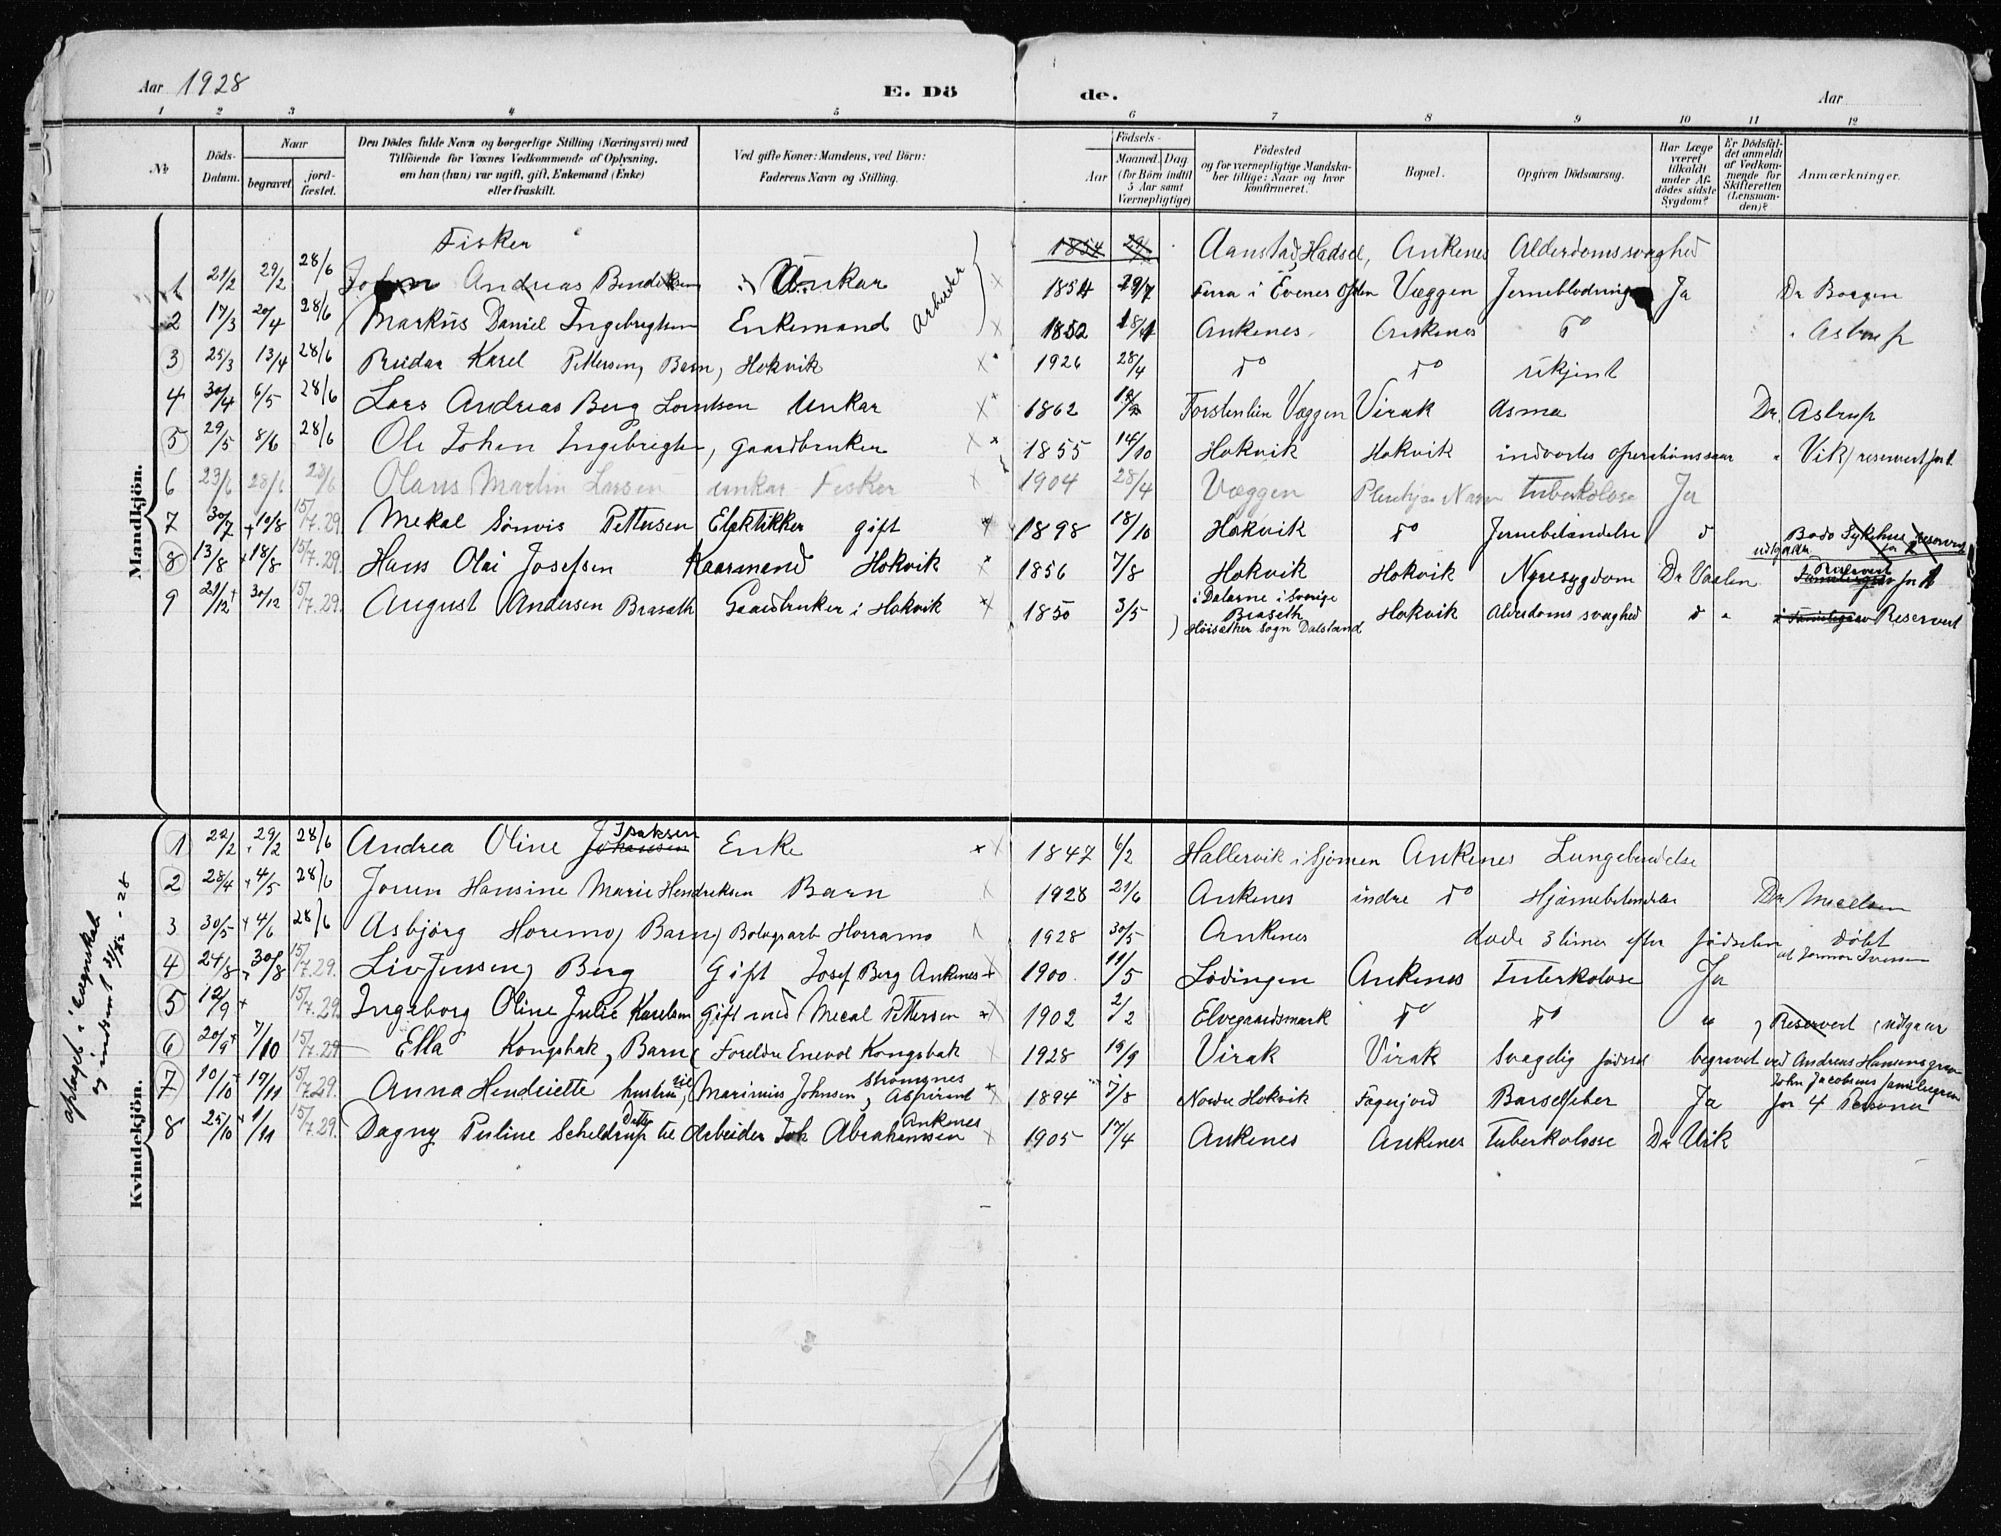 Aar 1928
E. Dö
de.
Aar
1 2 3 4 5 6 7 8 9 10 11 12
No.
Döds-Datum.
Naar
begravet.
jord-fæstet.
Den Dödes fulde Navn og borgerlige Stilling (Næringsvei) med
Tilföiende for Voxnes Vedkommende af Oplysning,
om han (hun) var ugift, gift, Enkemand (Enke)
eller fraskilt.
Ved gifte Koner: Mandens, ved Börn:
Faderens Navn og Stilling.
Födsels-
Aar
Maaned. Dag
(for Börn indtil
5 Aar samt
Værnepligtige)
Födested
og for værnepligtige Mandska-
ber tillige: Naar og hvor
konfirmeret.
Bopæl.
Opgiven Dödsaarsag.
Har Læge
været
tilkaldt
under Af-
dödes sidste
Sygdom?
Er Dödsfal-
det anmeldt
af Vedkom-
mende for
Skifteretten
(Lensman-
den)?
Anmærkninger.
Mandkjön.
Fisker 1854 29/7 Aanstad, Hadsel, Ankenes Alderdomssvaghed
1 21/2 29/2 28/6 Johan Andreas Bendiksen Unkar 1854 29/7 i Evenes Væggen Jerneblødning Ja Dr Borgen
Arbeider
2 17/3 20/4 28/6 Markus Daniel Ingebrigtsen Enkemand 1852 Ankenes Ankenes do Astrup
3 25/3 13/4 28/6 Reidar Karel Pettersen, Barn, Hokvik 1926 28/4 do do ukjent
4 30/4 6/5 28/6 Lars Andreas Berg Lorntsen Unkar 1862 Væggen Virak Asma Dr. Astrup
5 29/5 8/6 28/6 Ole Johan Ingebrigtsen, gaardbruker 1855 14/10 Hokvik Hokvik indvortes Vik
6 23/6 28/6 28/6 Olaus Martin Larsen unkar Fisker 1904 28/4 Væggen Tuberkolose Ja
7 30/7 10/8 15/7.29. Mekal Pettersen Elektikker gift 1898 18/10 Hokvik do Jernebetændelse Bodo Sykehus Reservert
8 13/8 18/8 15/7.29. Hans Olai Josefsen Kaarmand Hokvik 1856 7/8 Hokvik Hokvik Nyresygdom Dr Vaalen Reservert for 1
9 21/12 30/12 15/7.29. August Andersen Braseth Gaardbruker i Hokvik 1850 3/5 i Dalarne i Sverige Hokvik Alderdoms svaghed Reservert
Braseth
Høisæther Sogn Dalsland
Kvindekjön.
optaget i regnskab
og indsent 31/12 - 28
1 22/2 29/2 28/6 Andrea Oline Johansen Isaksen Enke 1847 6/2 Hallervik i Sjomen Ankenes Lungebetndelse
2 28/4 4/5 28/6 Hansine Marie Hendriksen Barn 1928 21/6 Ankenes indre do Hjærnebetendelse Dr
3 30/5 4/6 28/6 Asbjörg Horemo, Barn, Horramo 1928 30/5 Ankenes dode 3 timer efter fødselen Döbt
4 24/8 30/8 15/7.29. Liv Jensen, Berg Gift Josef Berg Ankenes 1900 11/5 Lödingen Ankenes Tuberkolose Ja
5 12/9 15/7.29. Ingeborg Oline Julie Karelsen Gift med Mecal Pettersen 1902 2/2 Elvegaardsmark do do Reservert, udgaar
6 20/9 7/10 15/7.29 Ella Kongsbak, Barn Foreldre Enevol Kongsbak 1928 19/9 Virak Virak Svagelig fødsel begravet ved Andreas Hansens grav
7 10/10 17/11 15/7.29. Anna Hendriette hustru til Marinius Johnsen, Strömsnes Aspirant 1894 7/8 Nordre Hokvik Fagerjord Barselfeber Ja John Jacobsens familiegrav
for 4 Personer
8 25/10 1/11 15/7.29. Dagny Peline Scheldrup Datter til Arbeider Joh Abrahamsen Ankenes 1905 17/4 Ankenes Ankenes Tuberkolose Dr Vik